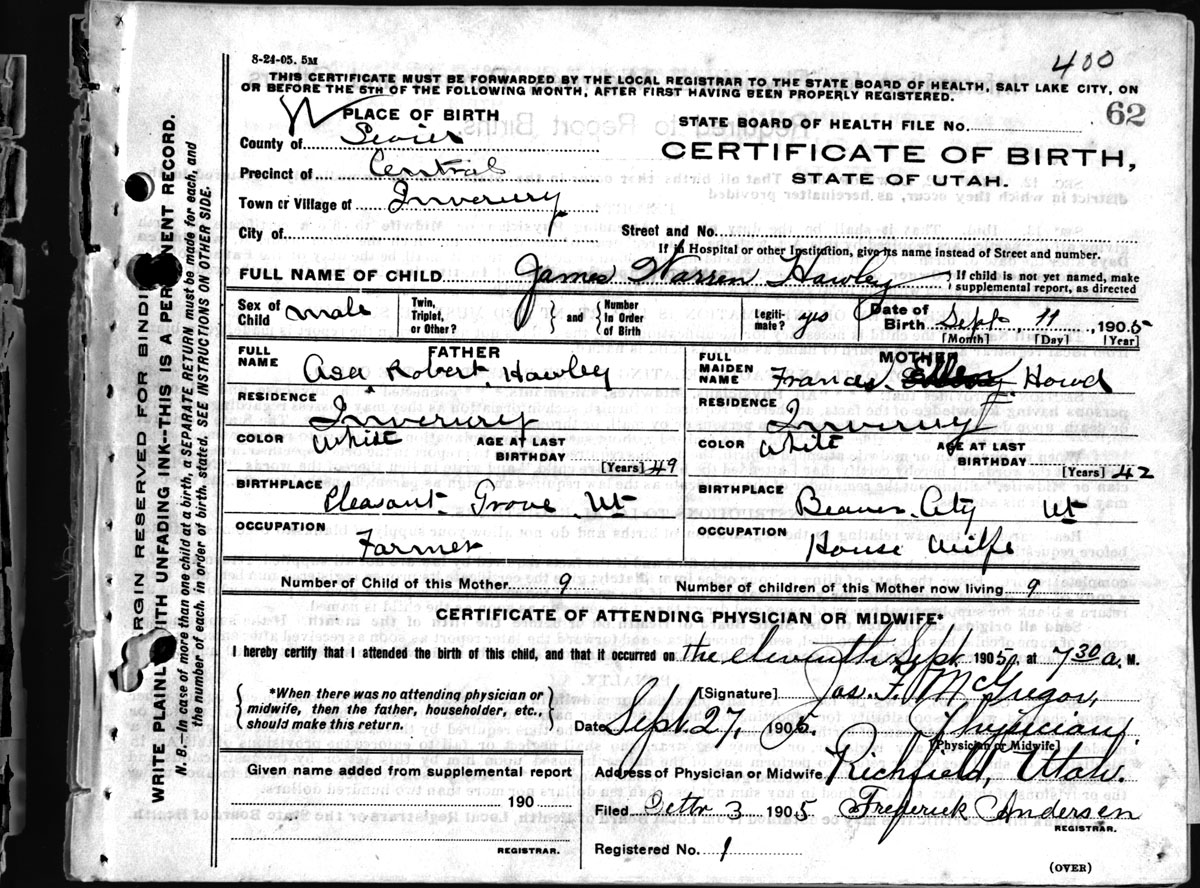 8-24-05. 5M
400
THIS CERTIFICATE MUST BE FORWARDED BY THE LOCAL REGISTRAR TO THE STATE BOARD OF HEALTH, SALT LAKE CITY, ON
OR BEFORE THE 5TH OF THE FOLLOWING MONTH, AFTER FIRST HAVING BEEN PROPERLY REGISTERED.
62
PLACE OF BIRTH
STATE BOARD OF HEALTH FILE No.
County of Sevier
CERTIFICATE OF BIRTH,
Precinct of Central
STATE OF UTAH.
Town or Village of Inverury
City of Street and No.
If in Hospital or other Institution, give its name instead of Street and number.
FULL NAME OF CHILD James Warren Hawley { If child is not yet named, make supplemental report, as directed
Sex of Child male Twin, Triplet, or Other? } and { Number In Order of Birth Legiti-mate? yes Date of Birth Sept, 11, 1905
[Month] [Day] [Year]
FATHER MOTHER
FULL NAME Asa Robert Hawley FULL MAIDEN NAME Francis Howd
RESIDENCE Inverury RESIDENCE Inverury
COLOR White AGE AT LAST BIRTHDAY [Years] 49 COLOR White AGE AT LAST BIRTHDAY [Years] 42
BIRTHPLACE Pleasant Grove Ut BIRTHPLACE Beaver City Ut
OCCUPATION Farmer OCCUPATION House Wife
Number of Child of this Mother 9 Number of children of this Mother now living 9
CERTIFICATE OF ATTENDING PHYSICIAN OR MIDWIFE*
I hereby certify that I attended the birth of this child, and that it occurred on the eleventh Sept 1905, at 7 30 a. M.
{ *When there was no attending physician or midwife, then the father, householder, etc., should make this return. }
[Signature] Jas. F. McGregor,
Date Sept. 27, 1905. Physician.
[Physician or Midwife]
Given name added from supplemental report
Address of Physician or Midwife Richfield, Utah.
190
Filed Octbr 3 1905 Frederick Andersen
REGISTRAR.
REGISTRAR.
Registered No. 1
(OVER)
MARGIN RESERVED FOR BINDING
WRITE PLAINLY WITH UNFADING INK--THIS IS A PERMANENT RECORD.
N. B.--In case of more than one child at a birth, a SEPARATE RETURN must be made for each, and
the number of each, in order of birth, stated. SEE INSTRUCTIONS ON OTHER SIDE.